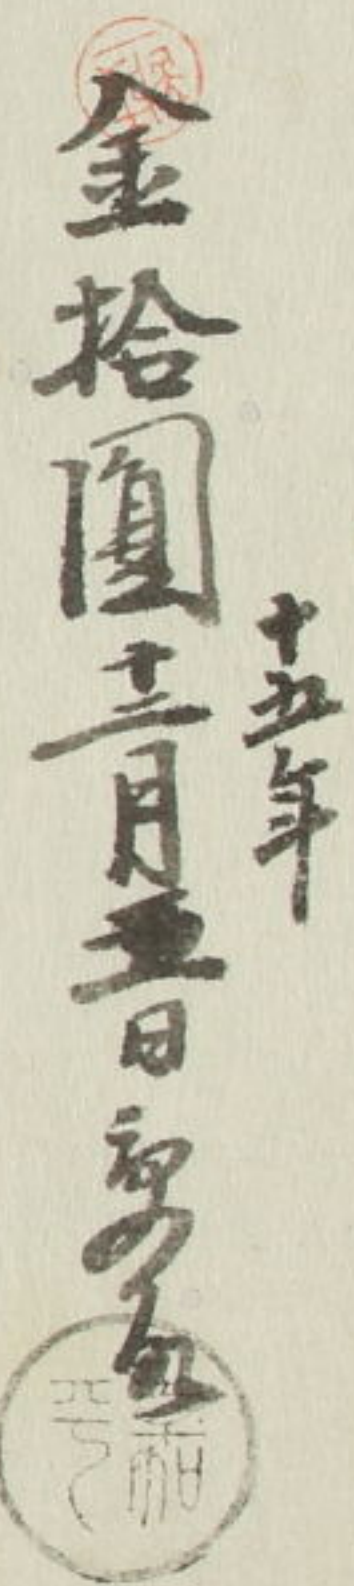 十五年
金拾圓十二月五日